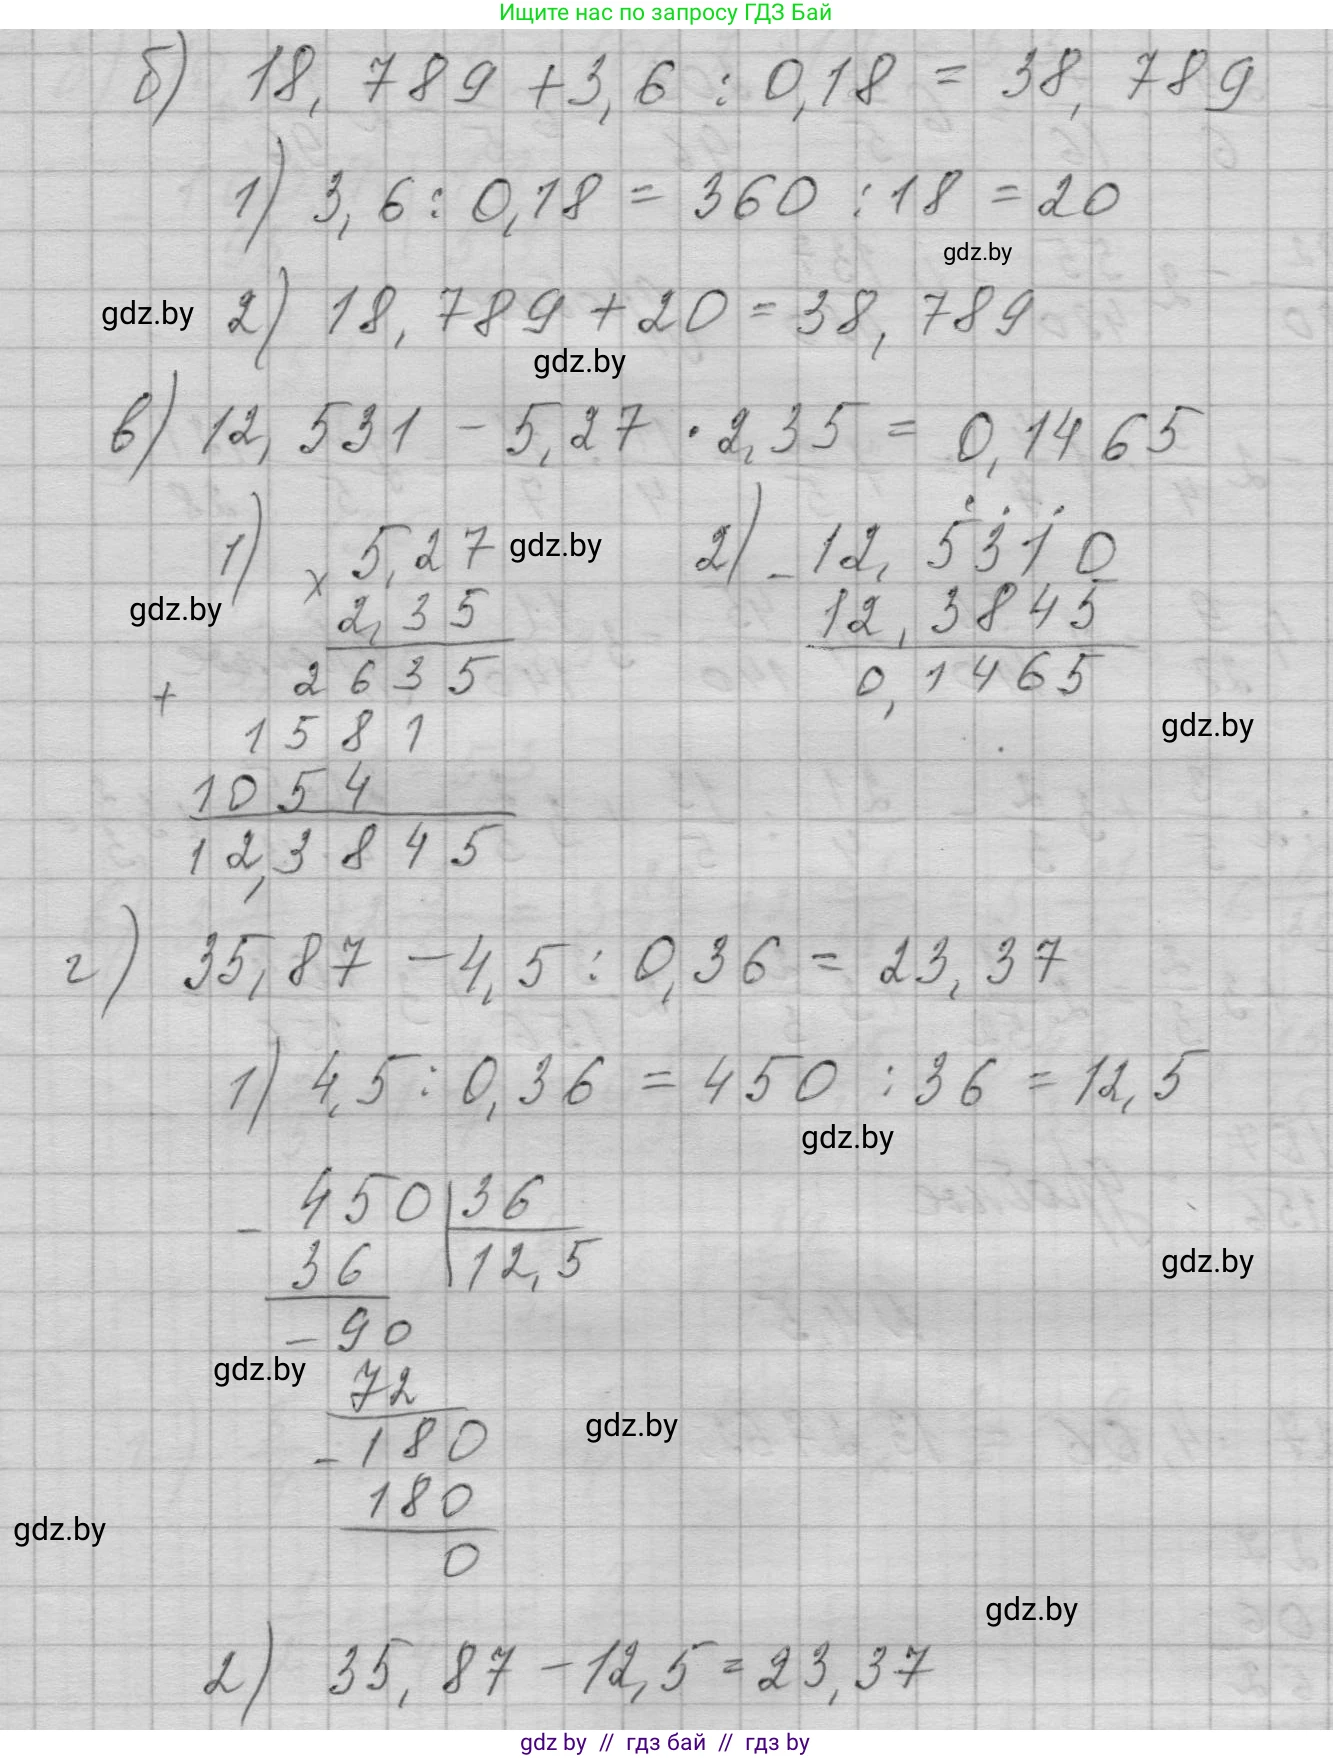 Ищите нас по запросу ГДЗ Бай
б) 18,789 + 3,6 : 0,18 = 38,789
1) 3,6 : 0,18 = 360 : 18 = 20
gdz.by
gdz.by 2) 18,789 + 20 = 38,789
gdz.by
в) 12,531 - 5,27 · 2,35 = 0,1465
1) × 5,27 gdz.by 2) - 12,5310
gdz.by 2,35 12,3845
+ 2635 0,1465
gdz.by
1581
1054
12,3845
г) 35,87 - 4,5 : 0,36 = 23,37
1) 4,5 : 0,36 = 450 : 36 = 12,5
gdz.by
- 450 | 36
36 | 12,5
gdz.by
- 90
gdz.by 72
gdz.by
- 180
180
gdz.by
0
gdz.by
2) 35,87 - 12,5 = 23,37
gdz by // гдз бай // гдз by